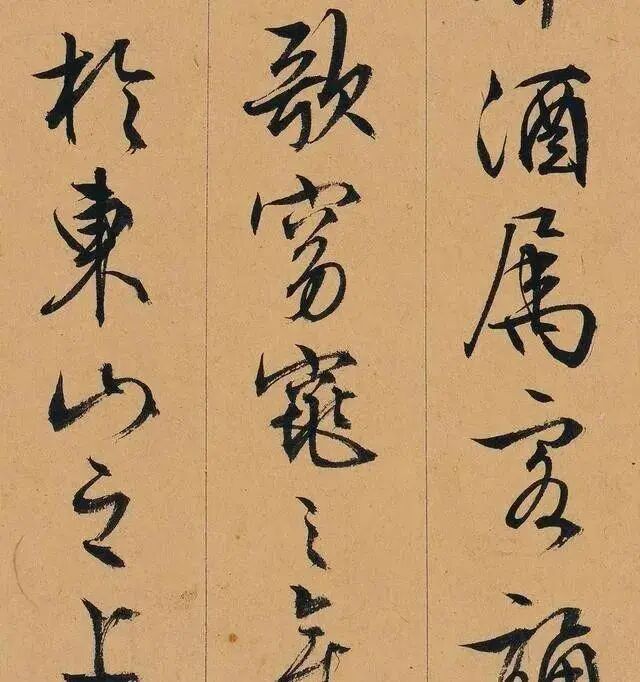 酒属客誦
歌窈窕之章
於東山之上